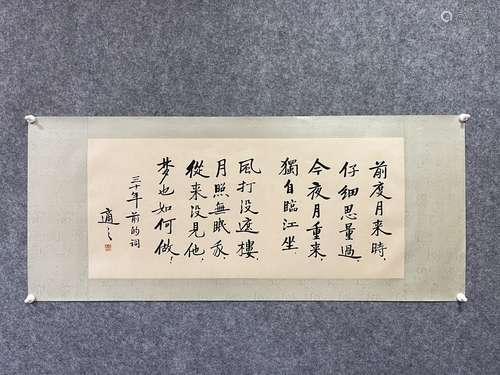 前度月来時，
仔细思量過，
今夜月重来，
獨自臨江坐。
風打没遮樓，
月照無眠我，
從来没見他，
梦也如何做！
三十年前的词
適之